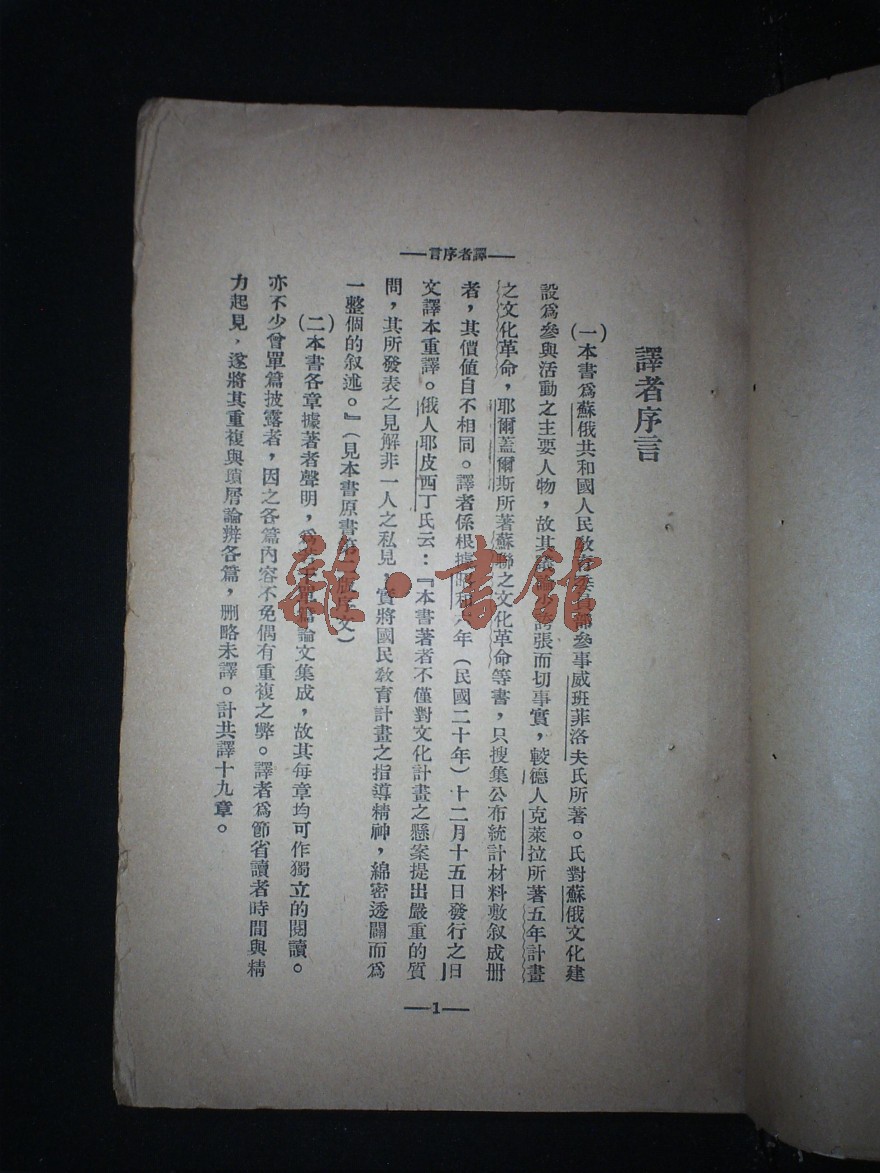 譯者序言
——譯者序言——
(一)本書爲蘇俄共和國人民敎育委員部參事威班菲洛夫氏所著。氏對蘇俄文化建
設爲參與活動之主要人物，故其張而切事實，較德人克萊拉所著五年計畫
之文化革命，耶爾蓋爾斯所著蘇聯之文化革命等書，只搜集公布統計材料敷叙成册
者，其價値自不相同。譯者係根據昭和六年（民國二十年）十二月十五日發行之日
文譯本重譯。俄人耶皮西丁氏云：『本書著者不僅對文化計畫之懸案提出嚴重的質
問，其所發表之見解非一人之私見，實將國民敎育計畫之指導精神，綿密透闢而爲
一整個的叙述。』（見本書原書第序文）
(二)本書各章據著者聲明，爲論文集成，故其每章均可作獨立的閱讀。
亦不少曾單篇披露者，因之各篇內容不免偶有重複之弊。譯者爲節省讀者時間與精
力起見，遂將其重複與瑣屑論辨各篇，删略未譯。計共譯十九章。
—1—
雜·書館